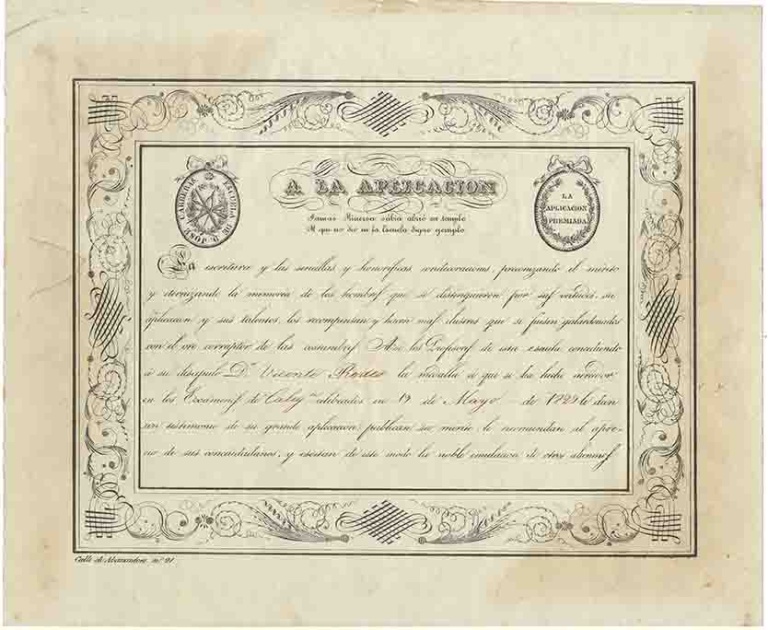 ESCUELA DE D. JOSE CABREDAL
A LA APLICACION
Jamás Minerva sabia abrió su templo
Al que no dió en la Escuela digno ejemplo
LA
APLICACION
PREMIADA
La escritura y las sencillas y honoríficas condecoraciones, preconizando el mérito
y eternizando la memoria de los hombres que se distinguieron por sus virtudes, su
aplicacion y sus talentos, los recompensan y hacen mas ilustres que si fuesen galardonados
con el oro corruptor de las costumbres. Asi los Profesores de esta escuela concediendo
á su discípulo Dn. Vicente Rodes la medalla á que se ha hecho acreedor
en los Exámenes de celebrados en 19 de Mayo de 1829 le dan
un testimonio de su grande aplicacion, publican su mérito, le recomiendan al apre-
cio de sus conciudadanos, y excitan de este modo la noble emulacion de otros alumnos.
Calle de nº. 91